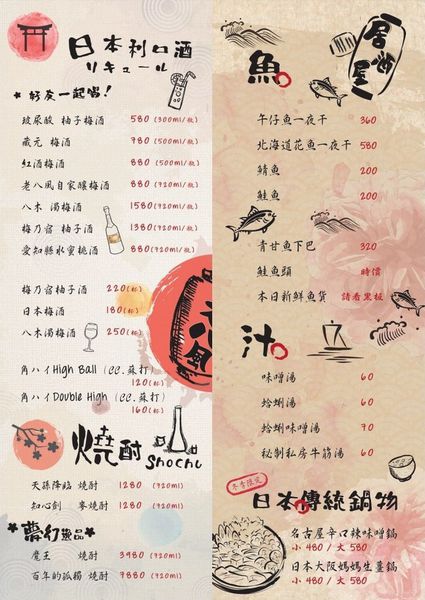 日本利口酒
リキュール
好友一起喝!
玻尿酸 柚子梅酒 580 (300ml/瓶)
藏元 梅酒 980 (500ml/瓶)
紅酒梅酒 880 (500ml/瓶)
老八風自家釀梅酒 880 (920ml/瓶)
八木 濁梅酒 1580 (920ml/瓶)
梅乃宿 柚子酒 1380 (920ml/瓶)
愛知縣水蜜桃酒 880 (920ml/瓶)
梅乃宿柚子酒 220 (杯)
日本梅酒 180 (杯)
八木濁梅酒 250 (杯)
角ハイHigh Ball (cc.蘇打)
120 (杯)
角ハイDouble High (cc.蘇打)
160 (杯)
燒酎
Shochu
天孫降臨 燒酎 1280 (720ml)
知心劍 麥燒酎 1280 (720ml)
夢幻逸品
魔王 燒酎 3980 (920ml)
百年的孤獨 燒酎 9880 (920ml)
居酒屋
魚
午仔魚一夜干 360
北海道花魚一夜干 580
鯖魚 200
鮭魚 200
青甘魚下巴 320
鮭魚頭 時價
本日新鮮魚貨 請看黑板
汁
味噌湯 60
蛤蜊湯 60
蛤蜊味噌湯 70
秘制私房牛筋湯 60
冬季限定
日本傳統鍋物
名古屋辛口辣味噌鍋
小 480 / 大 580
日本大阪媽媽生薑鍋
小 480 / 大 580